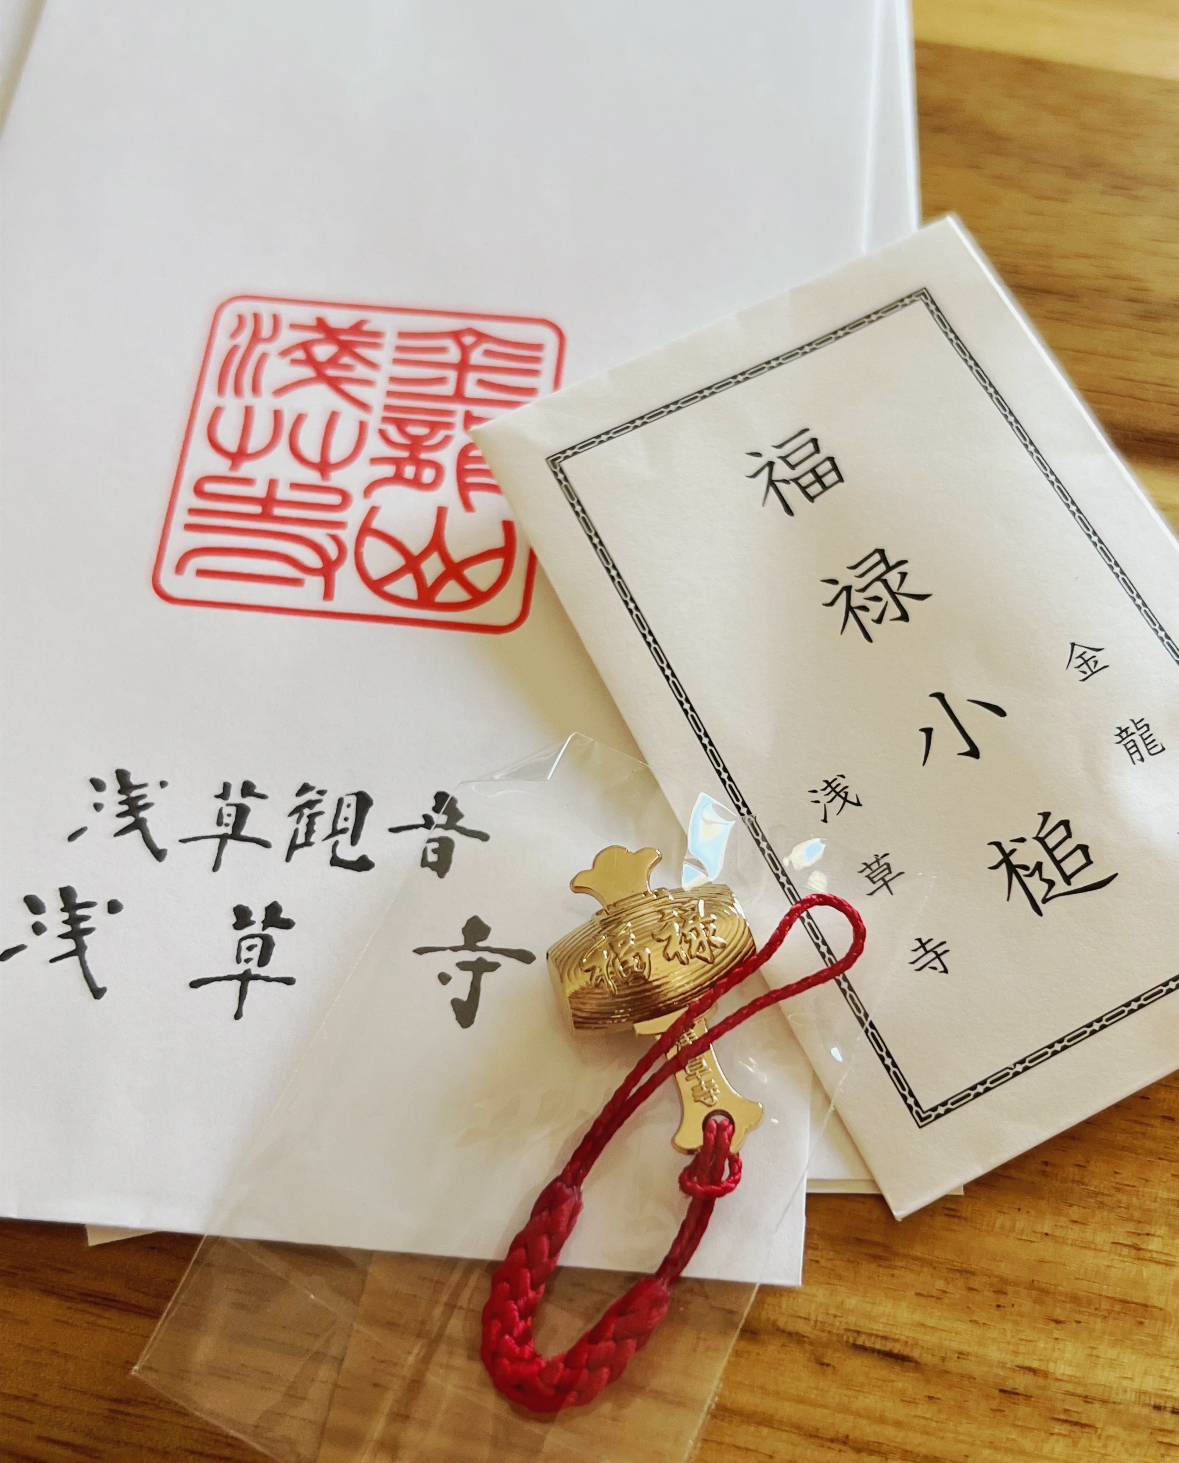 金龍山
淺艸寺
浅草観音
浅草寺
金龍
福禄小槌
浅草寺
福禄
浅草寺